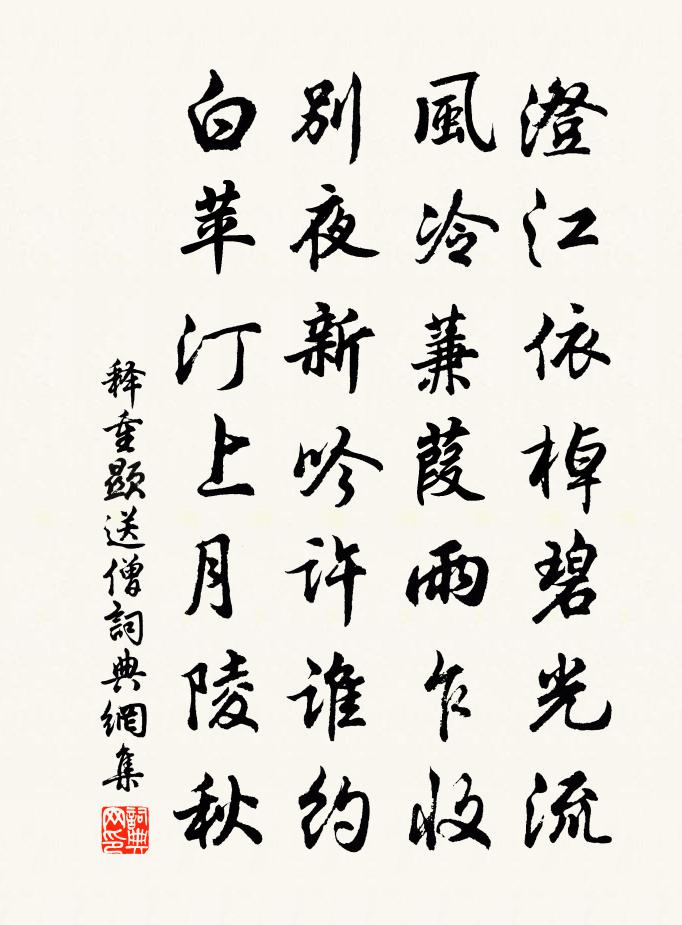 澄江依棹碧光流
風冷蒹葭雨乍收
別夜新吟許誰約
白苹汀上月陵秋
释重顯送僧詞典網集
詞典网印